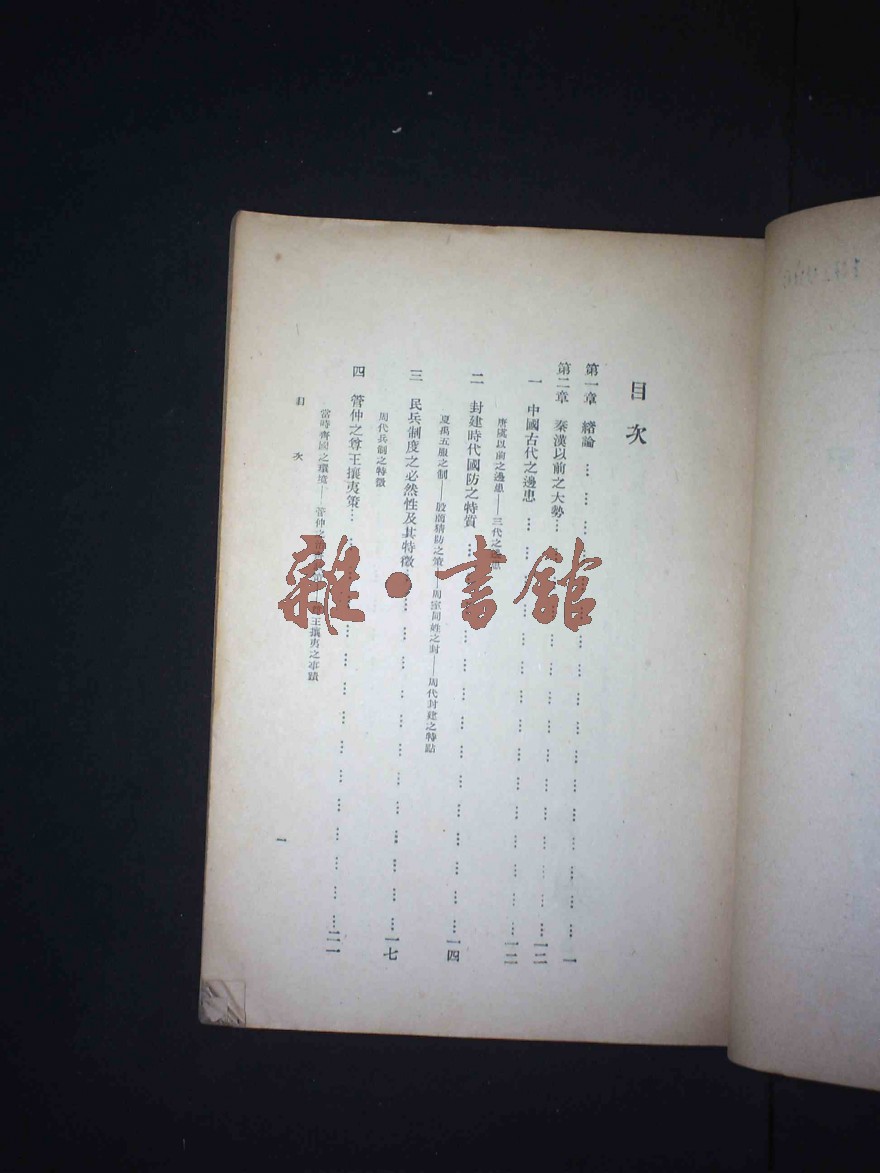 目次
第一章 緒論 … 一
第二章 秦漢以前之大勢 … 一二
一 中國古代之邊患 … 一二
唐虞以前之邊患——三代之邊患
二 封建時代國防之特質 … 一四
夏禹五服之制——殷商精防之策——周室同姓之封——周代封建之特點
三 民兵制度之必然性及其特徵 … 一七
周代兵制之特徵
四 管仲之尊王攘夷策 … 二一
當時齊國之環境——管仲之 王攘夷之事蹟
目次
一
雜·書館